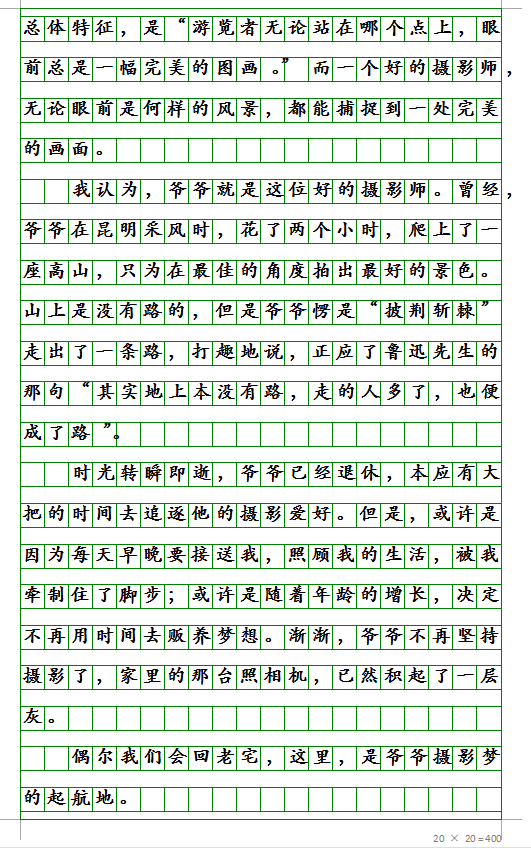 总体特征，是“游览者无论站在哪个点上，眼
前总是一幅完美的图画。”而一个好的摄影师，
无论眼前是何样的风景，都能捕捉到一处完美
的画面。
我认为，爷爷就是这位好的摄影师。曾经，
爷爷在昆明采风时，花了两个小时，爬上了一
座高山，只为在最佳的角度拍出最好的景色。
山上是没有路的，但是爷爷愣是“披荆斩棘”
走出了一条路，打趣地说，正应了鲁迅先生的
那句“其实地上本没有路，走的人多了，也便
成了路”。
时光转瞬即逝，爷爷已经退休，本应有大
把的时间去追逐他的摄影爱好。但是，或许是
因为每天早晚要接送我，照顾我的生活，被我
牵制住了脚步；或许是随着年龄的增长，决定
不再用时间去贩养梦想。渐渐，爷爷不再坚持
摄影了，家里的那台照相机，已然积起了一层
灰。
偶尔我们会回老宅，这里，是爷爷摄影梦
的起航地。
20 × 20=400